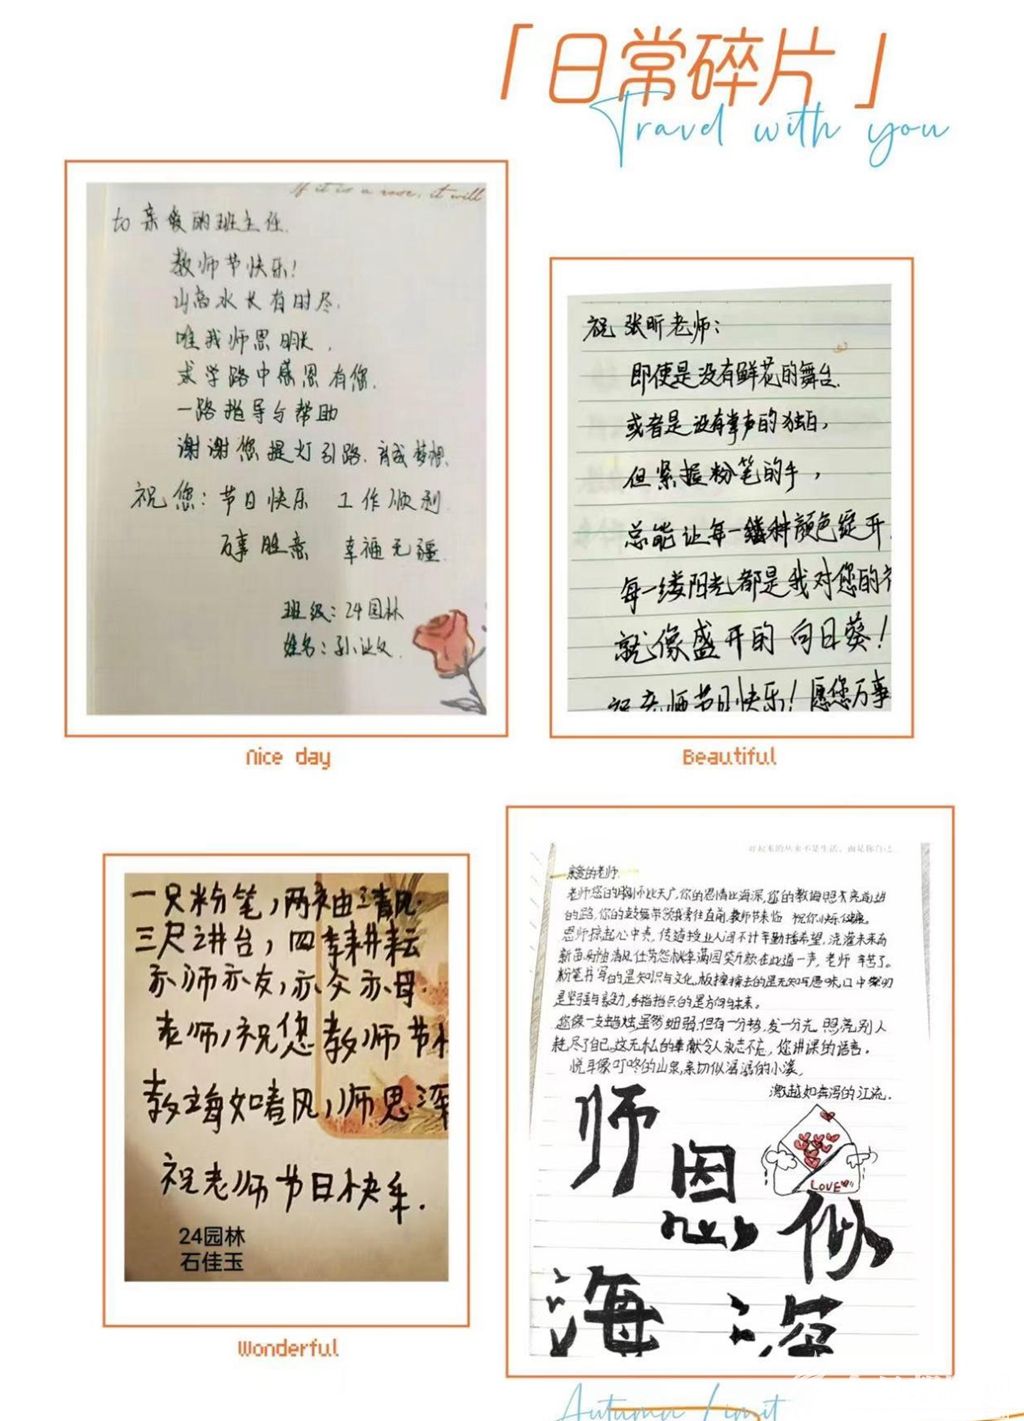 「日常碎片」
Travel with you
If it is a rose, it will
to 亲爱的班主任.
教师节快乐!
山高水长有时尽,
唯我师恩日月长,
求学路中感恩有您.
一路指导与帮助
谢谢您提灯引路,育成梦想.
祝您:节日快乐 工作顺利
万事胜意 幸福无疆
班级:24园林
姓名:孙
Nice day
祝张昕老师:
即使是没有鲜花的舞台,
或者是没有掌声的独白,
但紧握粉笔的手,
总能让每一种颜色绽开
每一缕阳光都是我对您的
就像盛开的向日葵!
祝老师节日快乐!愿您万事
Beautiful
一只粉笔,两袖清风
三尺讲台,四季耕耘
亦师亦友,亦父亦母.
老师,祝您教师节
教诲如春风,师恩深
祝老师节日快乐.
24园林
石佳玉
Wonderful
好起来的从来不是生活、而是你自己
亲爱的老师:
老师您的胸怀比天广,你的恩情比海深,您的教诲照亮前进
的路,你的鼓舞带领我勇往直前,教师节来临 祝你快乐健康。
恩师掠起心中亮,传道授业人间不计辛勤播希望,浇灌未来高
新苗两袖清风仕劳您秋季满园笑开颜在此道一声,老师辛苦了。
粉笔书写的是知识与文化,板擦擦去的是无知与愚昧,口中
是坚强与毅力,手指指点的是方向与未来。
您像一支蜡烛,虽然细弱,但有一分热,发一分光,照亮别人
耗尽了自己,这无私的奉献令人永志不忘,您讲课的语言。
悦耳像叮咚的山泉,亲切似潺潺的小溪,
激越如奔泻的江流。
LOVE
师恩似
海深
Autumn Limit